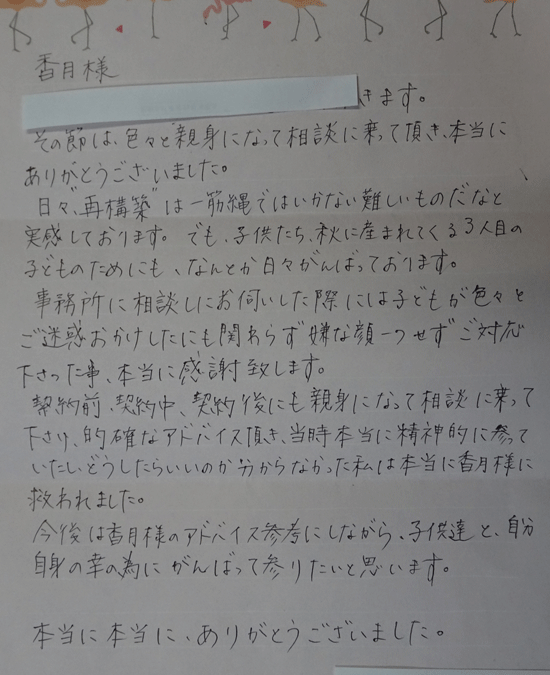 香月様
きます。
その節は、色々と親身になって相談に乗って頂き、本当に
ありがとうございました。
日々、"再構築"は一筋縄ではいかない難しいものだなと
実感しております。でも、子供たち、秋に産まれてくる3人目の
子どものためにも、なんとか日々がんばっております。
事務所に相談しにお伺いした際には子どもが色々と
ご迷惑おかけしたにも関わらず嫌な顔一つせずご対応
下さった事、本当に感謝致します。
契約前、契約中、契約後にも親身になって相談に乗って
下さり、的確なアドバイス頂き、当時本当に精神的に参って
いたし、どうしたらいいのか分からなかった私は本当に香月様に
救われました。
今後は香月様のアドバイス参考にしながら、子供達と、自分
自身の幸の為にがんばって参りたいと思います。
本当に本当に、ありがとうございました。